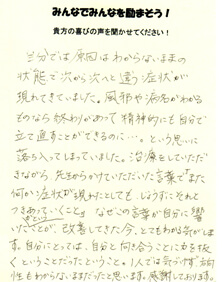 みんなでみんなを励まそう！
貴方の喜びの声を聞かせてください！
自分では原因はわからないままの
状態で次から次へと違う症状が
現れてきていました。風邪や病名がわかる
ものなら終わりがあって精神的にも自分で
立て直すことができるのに…。という思いに
落ち入ってしまっていました。治療をしていただ
きながら先生からかけていただいた言葉で「また
何か症状が現れたとしても、じょうずにそれと
つきあっていくこと」。なぜこの言葉が自分に響
いたことが、改善してきた今、とてもわかる気がしま
す。自分にとっては、自分と向き合うことに力を抜
くということだったということ。1人では気づけず方向
性もわからないままだったと思います。感謝しております。